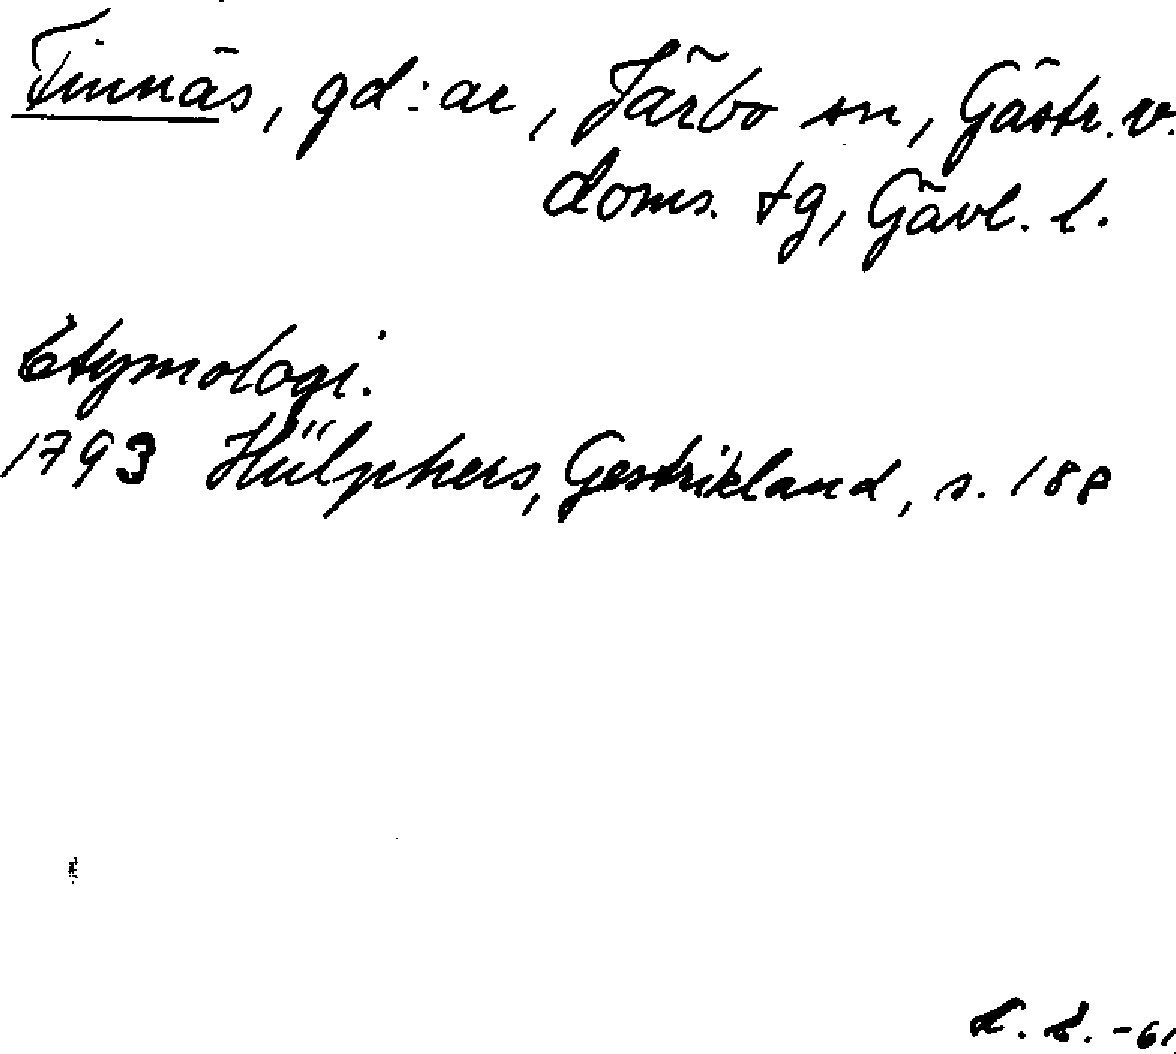 Finnäs, gd:ar, Järbo sn, Gästr. v.
doms. tg, Gävl. l.
Etymologi.
1793 Hülphers, Gestrikland, s. 188
-61